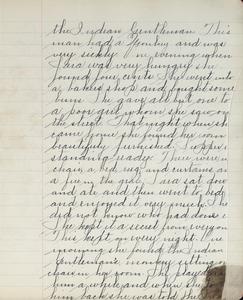 the Indian Gentleman This
man had a Monkey and was
very sickly. One evening when
Sara was very hungry she
found four cents She went into
a bakers shop and bought some
buns. She gave all but one to
a poor girl whom she saw on
the street. That night when she
came home she found her room
beautifully furnished, Supper
standing ready. There were
chairs, a bed, rug and curtains and
a fire in the grate, Sara sat down
and ate and then went to bed
and enjoyed it very much. She
did not know who had done it
She kept it a secret from everyone
This kept on every night. One
morning she found the Indian
Gentleman's monkey sitting on
chair in her room. She played
him a while and when she to
him back she was told the